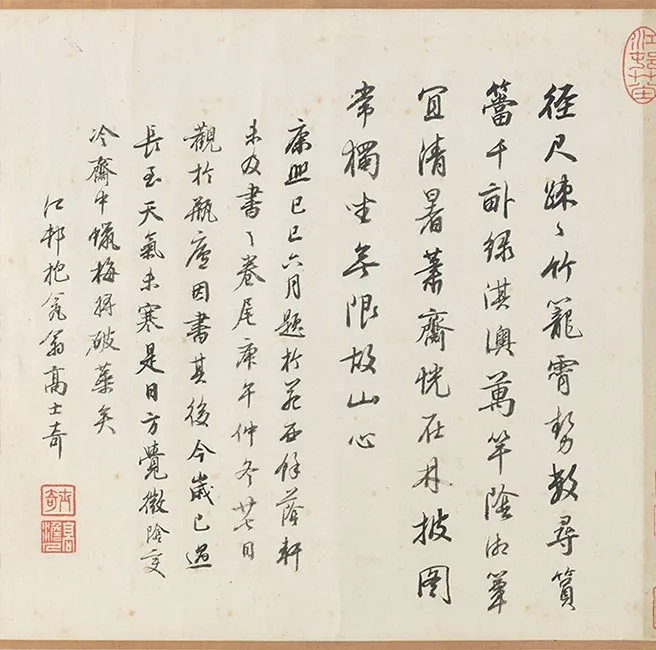 徑尺踈〻竹籠霄勢數尋篔
簹千畝綠淇澳萬竿陰湘簟
宜清暑蕭齋恍在林披圖
常獨坐無限故山心
康熙己巳六月題於苑西餘蔭軒
未及書〻卷尾庚午仲冬廿七日
觀於瓶廬因書其後今歲已過
長至天氣未寒是日方覺微陰變
冷齋中蠟梅將破蕚矣
江邨抱瓮翁高士奇